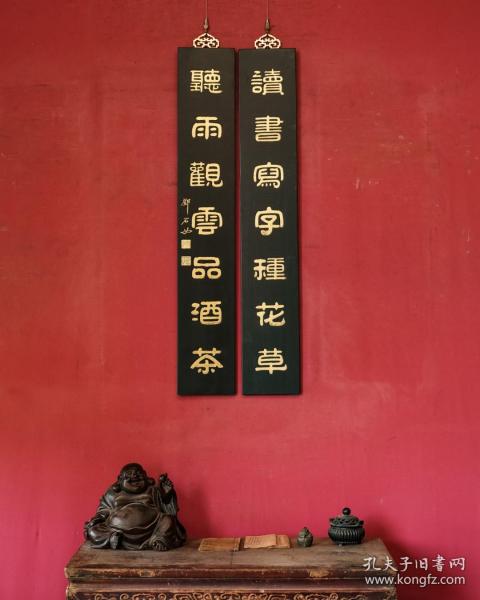 讀書寫字種花草
聽雨觀雲品酒茶
鄧石如
孔夫子旧书网
www.kongfz.com